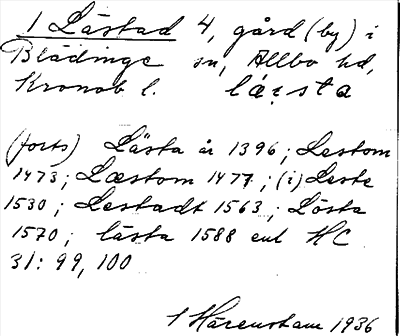 1 Låstad 4, gård (by) i
Blädinge sn, Allbo hd,
Kronob l. lásta
(forts) Låsta år 1396; Lestom
1473; Læstom 1477; (i) Leste
1530; Lestadt 1563; Lösta
1570; låsta 1588 enl HC
31: 99, 100
1 Härensham 1936